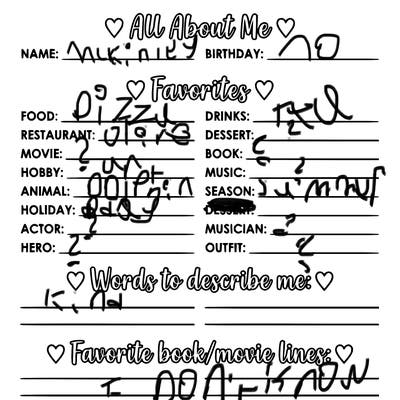 All About Me
NAME: Mckinley BIRTHDAY: 10
Favorites
FOOD: Pizza DRINKS:
RESTAURANT: DESSERT: ?
MOVIE: ? BOOK: ?
HOBBY: art MUSIC: ?
ANIMAL: DOlphin SEASON: summr
HOLIDAY: DESSERT:
ACTOR: ? MUSICIAN: ?
HERO: ? OUTFIT: ?
Words to describe me:
Kind
Favorite book/movie lines:
I DON't KNOW